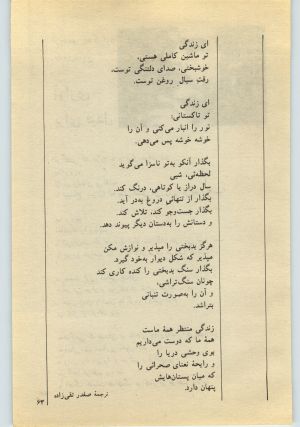 ای زندگی
تو ماشین کاملی هستی،
خوشبختی، صدای دلتنگی توست،
رفتِ سیال روغن توست.
ای زندگی
تو تاکستانی:
نور را انبار می‌کنی و آن را
خوشه خوشه پس می‌دهی.
بگذار آنکو به‌تو ناسزا می‌گوید
لحظه‌ئی، شبی
سال دراز یا کوتاهی، درنگ کند.
بگذار از تنهائی دروغ به‌در آید.
بگذار جست‌وجو کند، تلاش کند.
و دستانش را به‌دستان دیگر پیوند دهد.
هرگز بدبختی را مپذیر و نوازش مکن
مپذیر که شکل دیوار به‌خود گیرد.
بگذار سنگ بدبختی را کنده کاری کند
چونان سنگ‌تراشی،
و آن را به‌صورت تنبانی
بتراشد.
زندگی منتظر همهٔ ماست
همهٔ ما که دوست می‌داریم
بوی وحشی دریا را
و رایحهٔ نعنای صحرائی را
که میان پستان‌هایش
پنهان دارد.
ترجمهٔ صفدر تقی‌زاده
۶۳